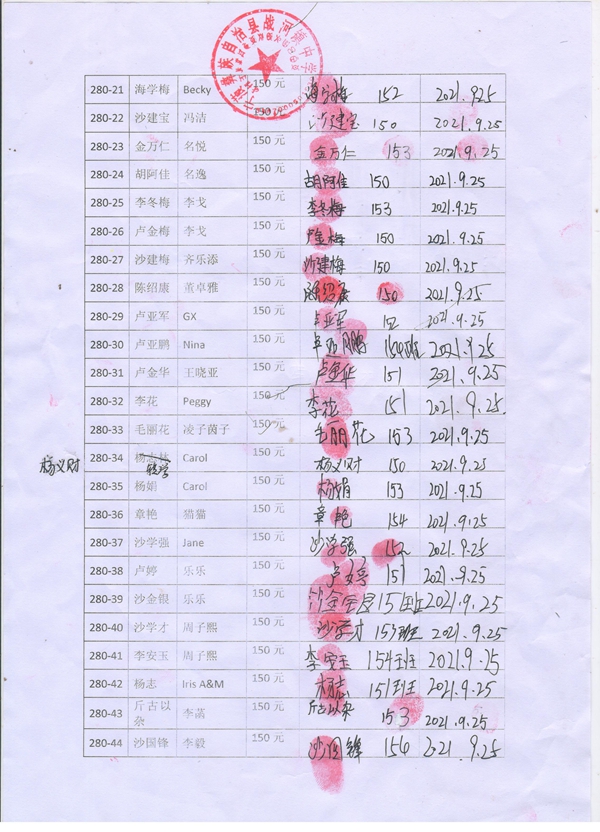 280-21 海学梅 Becky 150 元 海学梅 152 2021.9.25
280-22 沙建宝 冯洁 150 元 沙建宝 150 2021.9.25
280-23 金万仁 名悦 150 元 金万仁 153 2021.9.25
280-24 胡阿佳 名逸 150 元 胡阿佳 150 2021.9.25
280-25 李冬梅 李戈 150 元 李冬梅 153 2021.9.25
280-26 卢金梅 李戈 150 元 卢金梅 150 2021.9.25
280-27 沙建梅 齐乐添 150 元 沙建梅 150 2021.9.25
280-28 陈绍康 董卓雅 150 元 陈绍康 150 2021.9.25
280-29 卢亚军 GX 150 元 卢亚军 2021.9.25
280-30 卢亚鹏 Nina 150 元 卢亚鹏 154班 2021.9.25
280-31 卢金华 王晓亚 150 元 卢金华 151 2021.9.25
280-32 李花 Peggy 150 元 李花 151 2021.9.25
280-33 毛丽花 凌子茵子 150 元 毛丽花 153 2021.9.25
杨义财 280-34 转学 Carol 150 元 杨义财 150 2021.9.25
280-35 杨娟 Carol 150 元 杨娟 153 2021.9.25
280-36 章艳 猫猫 150 元 章艳 154 2021.9.25
280-37 沙学强 Jane 150 元 沙学强 152 2021.9.25
280-38 卢婷 乐乐 150 元 卢婷 151 2021.9.25
280-39 沙金银 乐乐 150 元 沙金银 2021.9.25
280-40 沙学才 周子熙 150 元 沙学才 153班 2021.9.25
280-41 李安玉 周子熙 150 元 李安玉 154班 2021.9.25
280-42 杨志 Iris A&M 150 元 杨志 151班 2021.9.25
280-43 斤古以杂 李菡 150 元 斤古以杂 153 2021.9.25
280-44 沙国锋 李毅 150 元 沙国锋 2021.9.25